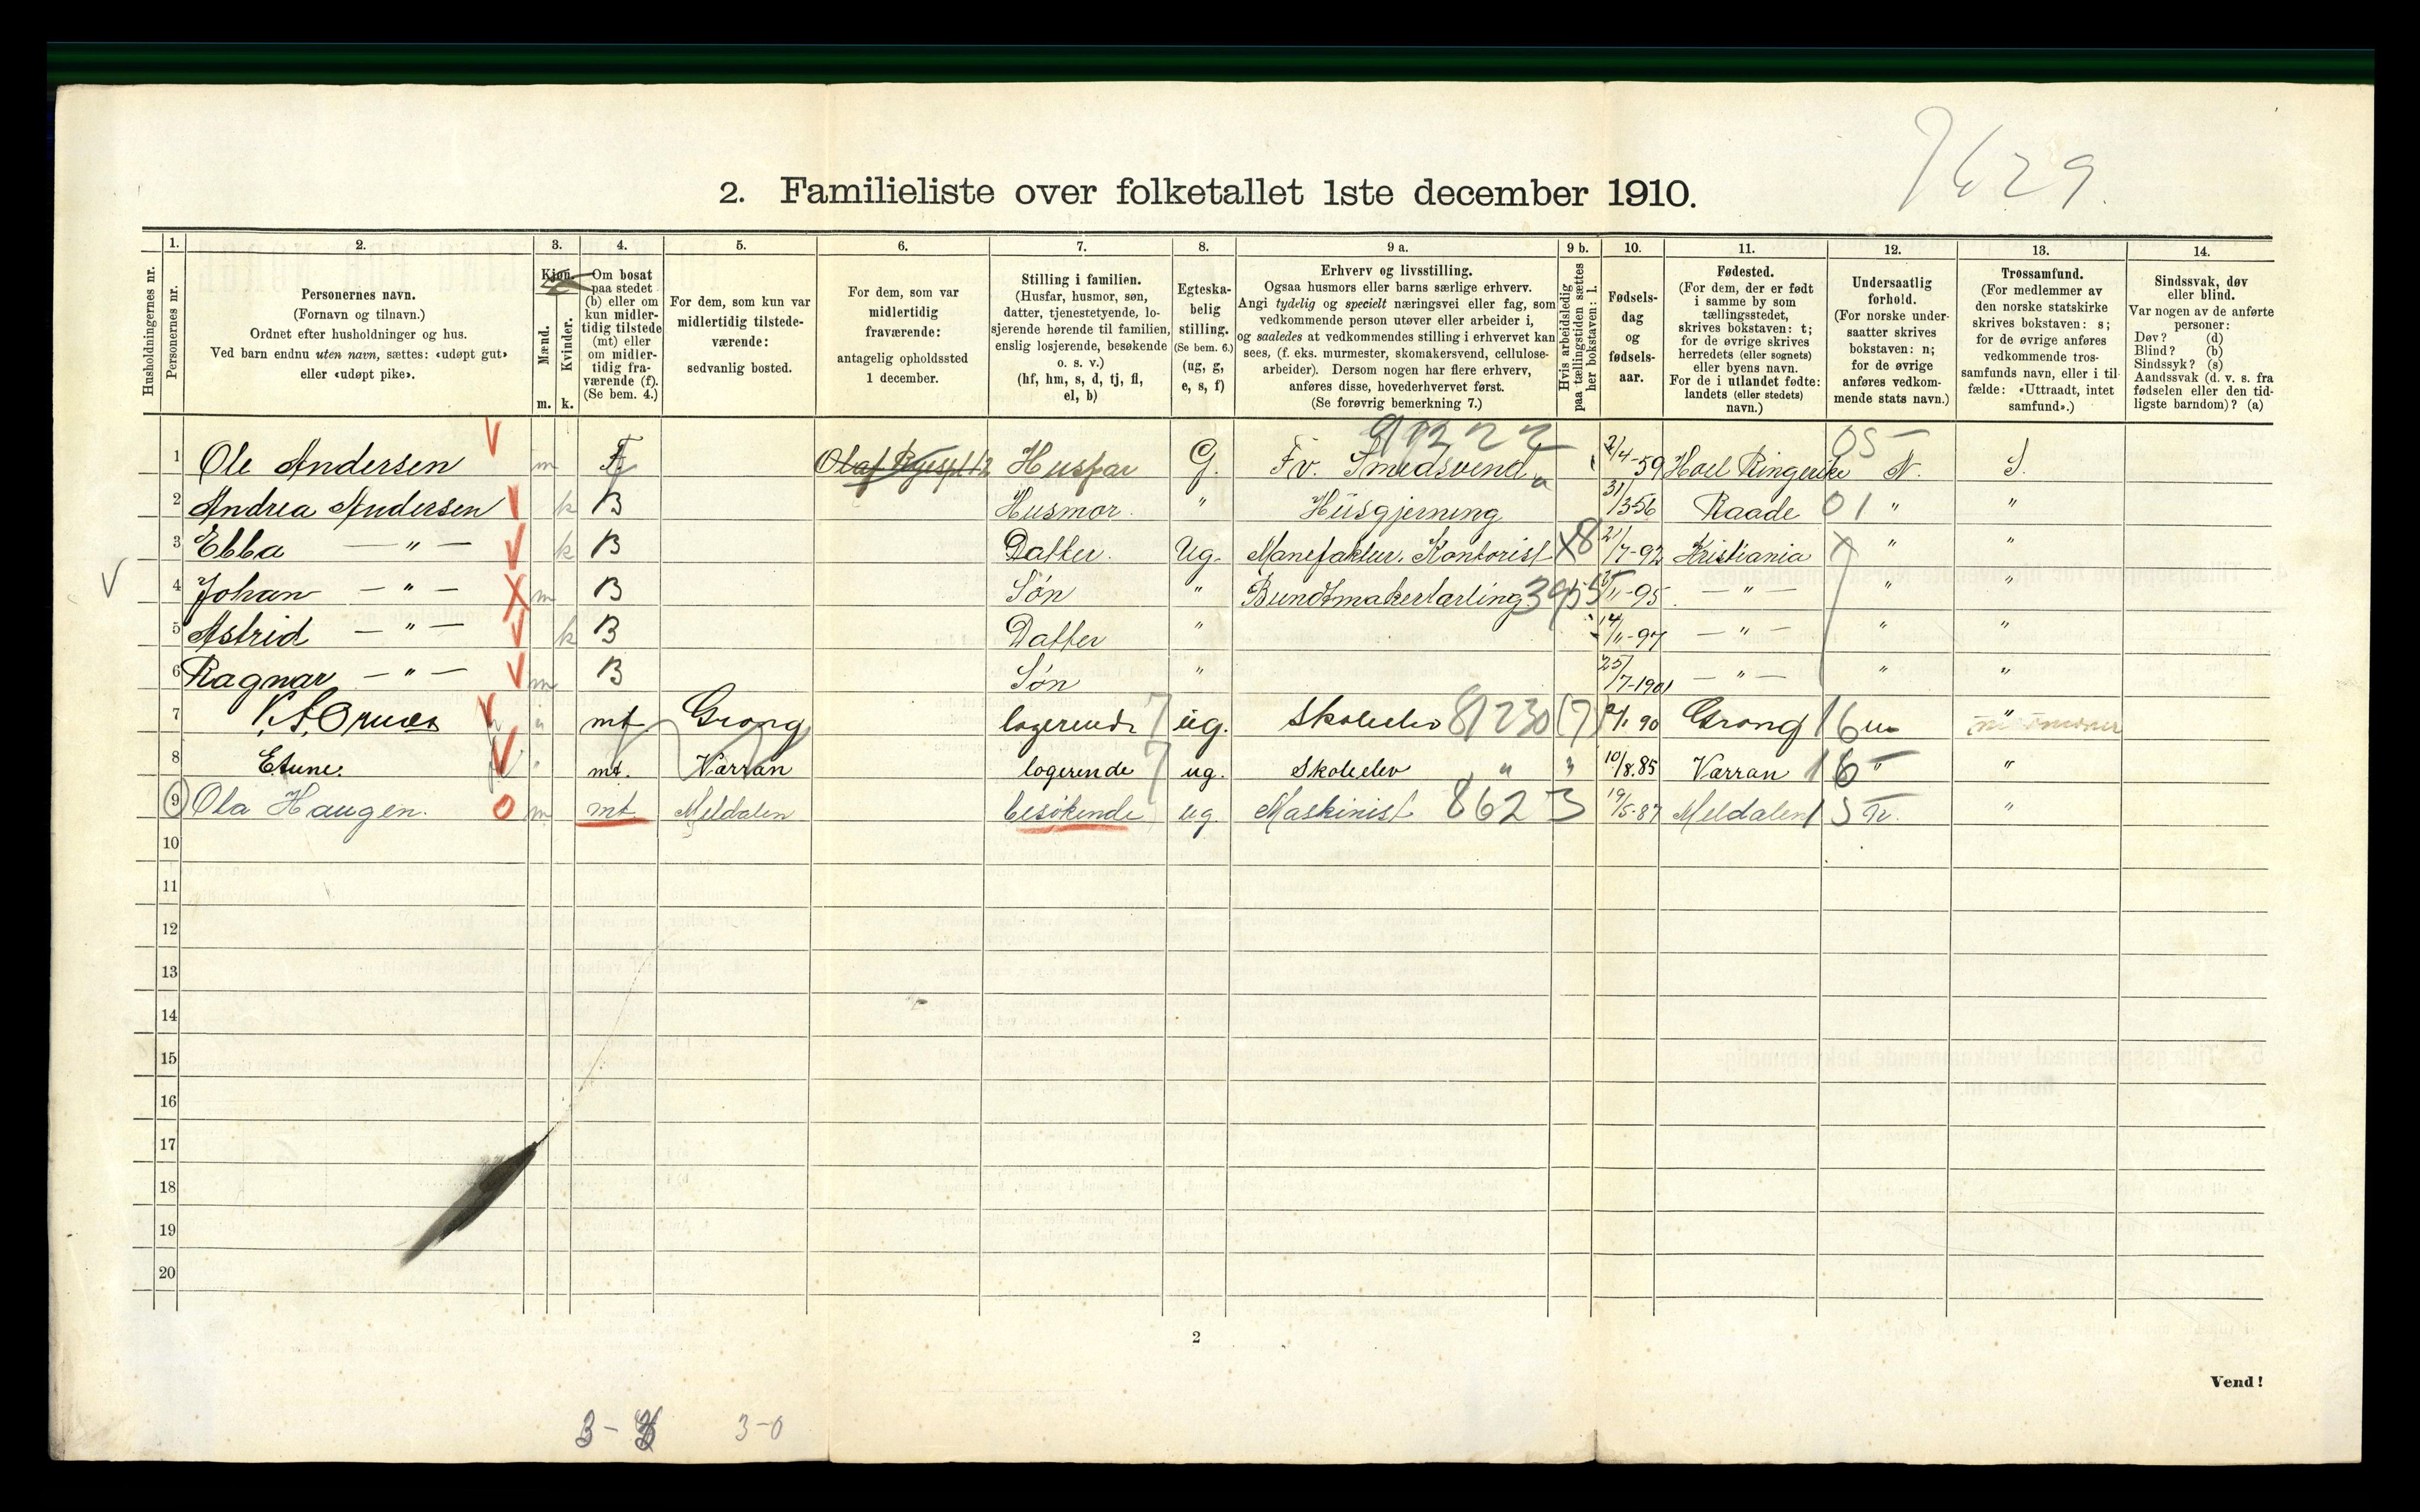 7629
2. Familieliste over folketallet 1ste december 1910.
Husholdningernes nr.
1. Personernes nr.
2. Personernes navn. (Fornavn og tilnavn.) Ordnet efter husholdninger og hus. Ved barn endnu uten navn, sættes: «udøpt gut» eller «udøpt pike».
3. Kjøn. Mænd. m. Kvinder. k.
4. Om bosat paa stedet (b) eller om kun midlertidig tilstede (mt) eller om midlertidig fraværende (f). (Se bem. 4.)
5. For dem, som kun var midlertidig tilstedeværende: sedvanlig bosted.
6. For dem, som var midlertidig fraværende: antagelig opholdssted 1 december.
7. Stilling i familien. (Husfar, husmor, søn, datter, tjenestetyende, losjerende hørende til familien, enslig losjerende, besøkende o. s. v.) (hf, hm, s, d, tj, fl, el, b)
8. Egteskabelig stilling. (Se bem. 6.) (ug, g, e, s, f)
9 a. Erhverv og livsstilling. Ogsaa husmors eller barns særlige erhverv. Angi tydelig og specielt næringsvei eller fag, som vedkommende person utøver eller arbeider i, og saaledes at vedkommendes stilling i erhvervet kan sees, (f. eks. murmester, skomakersvend, cellulosearbeider). Dersom nogen har flere erhverv, anføres disse, hovederhvervet først. (Se forøvrig bemerkning 7.)
9 b. Hvis arbeidsledig paa tællingstiden sættes her bokstaven: l.
10. Fødselsdag og fødselsaar.
11. Fødested. (For dem, der er født i samme by som tællingsstedet, skrives bokstaven: t; for de øvrige skrives herredets (eller sognets) eller byens navn. For de i utlandet fødte: landets (eller stedets) navn.)
12. Undersaatlig forhold. (For norske undersaatter skrives bokstaven: n; for de øvrige anføres vedkommende stats navn.)
13. Trossamfund. (For medlemmer av den norske statskirke skrives bokstaven: s; for de øvrige anføres vedkommende trossamfunds navn, eller i tilfælde: «Uttraadt, intet samfund».)
14. Sindssvak, døv eller blind. Var nogen av de anførte personer: Døv? (d) Blind? (b) Sindssyk? (s) Aandssvak (d. v. s. fra fødselen eller den tidligste barndom)? (a)
1 Ole Andersen m F Husfar G. Fv. Smedsvend 2/4-59 Hoel Ringerike 05 N. S.
2 Andrea Andersen k B Husmor. " Husgjerning 31/3 56 Raade 01 " "
3 Ebba — " — k B Datter. Ug. Manefaktur. Kontorist X8 21/7-92 Kristiania " "
4 Johan — " — m B Søn " Bundtmakerlærling 3955 /11-95 — " — " "
5 Astrid — " — k B Datter " 14/11-97 — " — " "
6 Ragnar — " — m B Søn " 25/7-1901 — " — " "
7 mt Grong logerende 7 ug. Skoleelev 81230 (7) /1 90 Grong 16 n "
8 Etune. mt. Værran logerende 7 ug. Skoleelev " " 10/8.85 Værran 16 " "
9 Ola Haugen. m mt. Meldalen besøkende ug. Maskinist 8623 19/5-87 Meldalen 15 n. "
10
11
12
13
14
15
16
17
18
19
20
2
Vend!
3-0